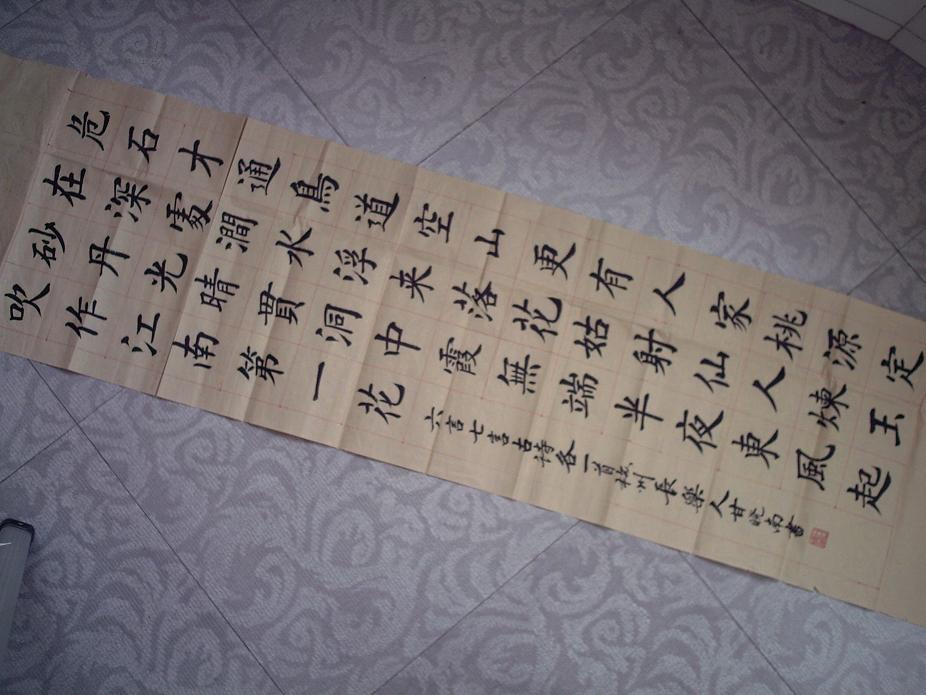 危石才通鳥道空山更有人家桃源定
在深處澗水浮来落花姑射仙人煉玉
砂丹光晴貫洞中霞無端半夜東風起
吹作江南第一花
六言七言古詩各一首杭州長樂人甘晓南書